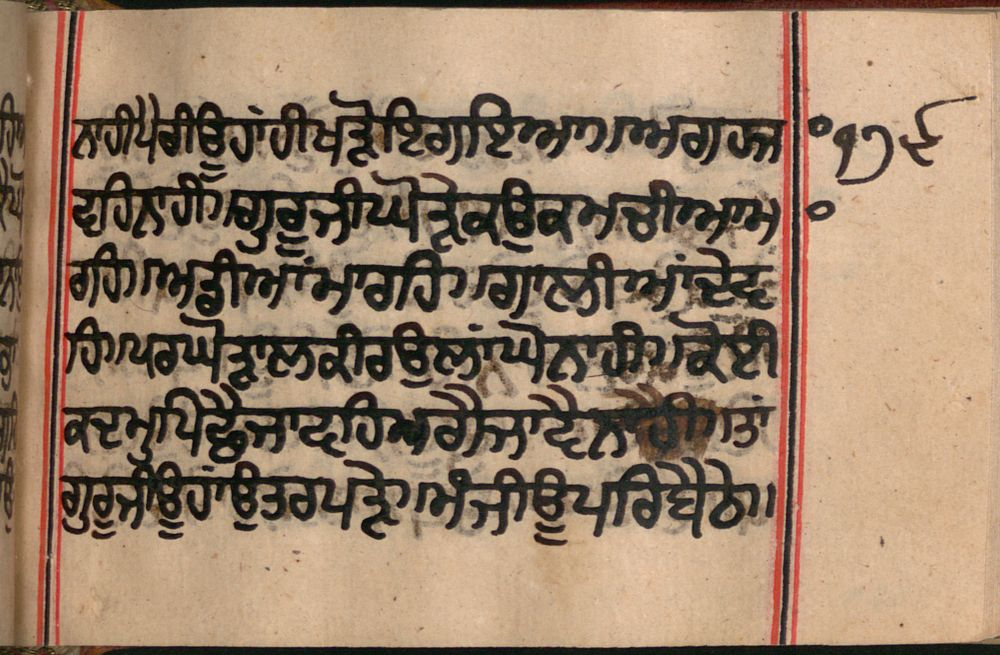 ਨਾਹੀਪੈਰੀਊਹਾਂਹੀਖੜੋਇਗਇਆ।ਅਗਹਜਾ ੧੭੬
ਵਹਿਨਾਹੀ।ਗੁਰੂਜੀਘੋੜੇਕਉਕਮਚੀਆਮਾ
ਰਹਿ।ਅਡੀਆਂਮਾਰਹਿ।ਗਾਲੀਆਂਦੇਵ
ਹਿ।ਪਰਘੋੜਾਲਕੀਰਉਲਾਂਘੇਨਾਹੀ।ਕੋਈ
ਕਦਮੁਪਿਛੈਜਾਵਹਿਅਗੈਜਾਵੈਨਾਹੀ।ਤਾਂ
ਗੁਰੂਜੀਊਹਾਂਉਤਰਪੜੇ।ਮੰਜੀਊਪਰਿਬੈਠੇ॥